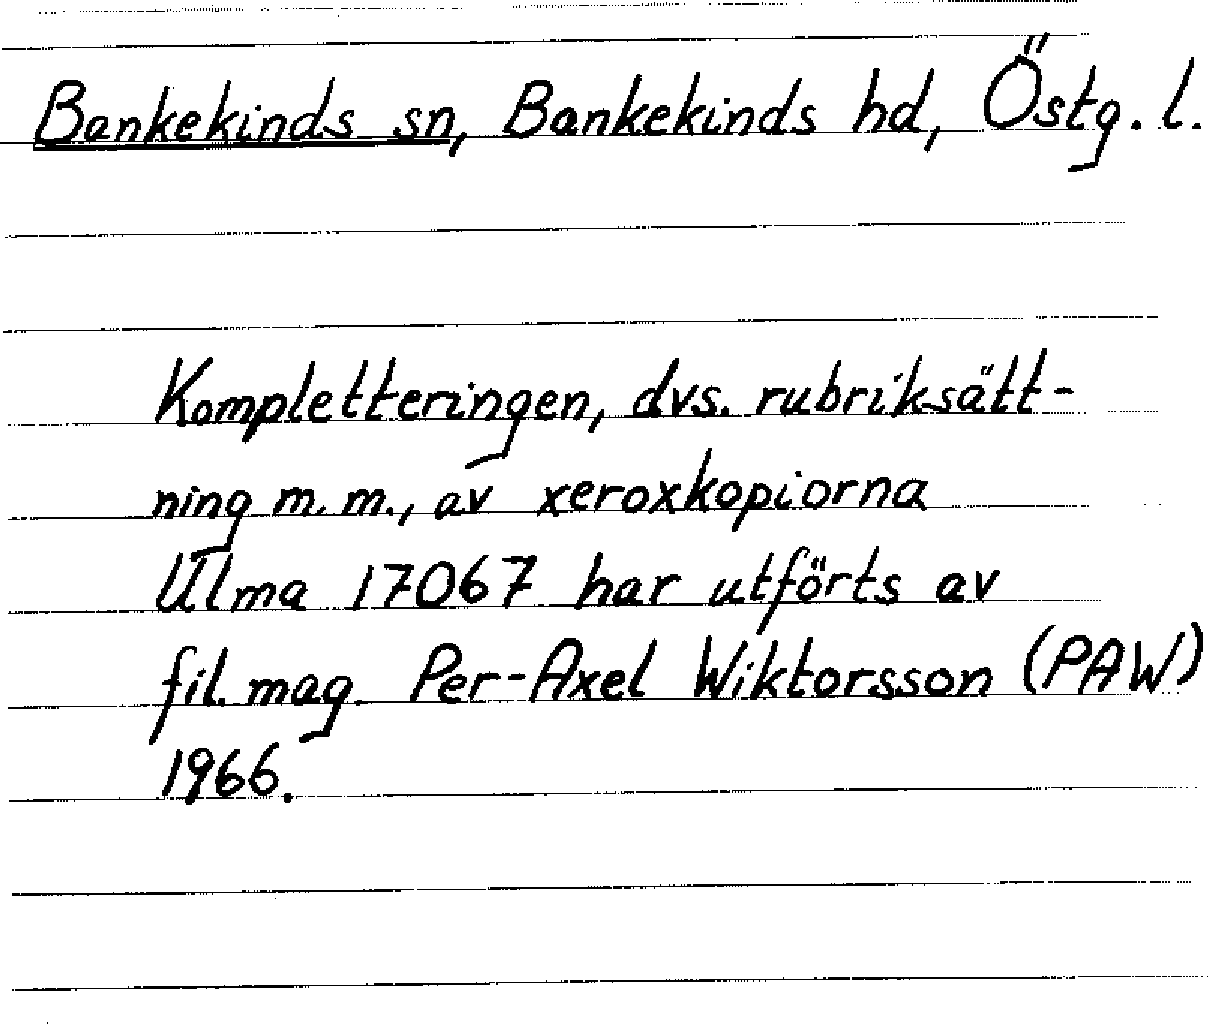 Bankekinds sn, Bankekinds hd, Östg. l.
Kompletteringen, dvs. rubriksätt-
ning m.m., av xeroxkopiorna
Ulma 17067 har utförts av
fil.mag. Per-Axel Wiktorsson (PAW)
1966.